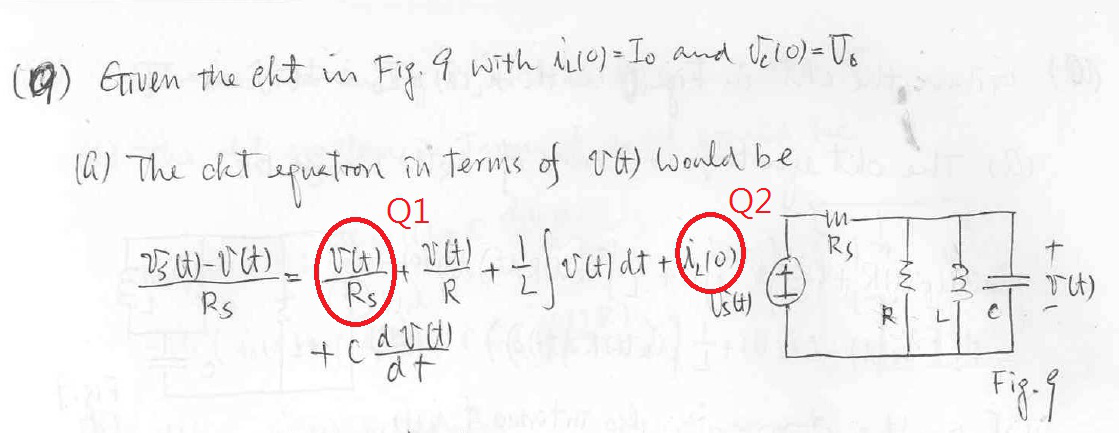 (9) Given the ckt in Fig 9 with iL(0)=I0 and Vc(0)=V0
(a) The ckt equation in terms of v(t) would be
Q1 Q2
(vs(t)-v(t))/Rs = v(t)/Rs + v(t)/R + 1/L ∫ v(t) dt + iL(0)
+ C dv(t)/dt
Rs
vs(t) + - R L C + v(t) -
Fig. 9